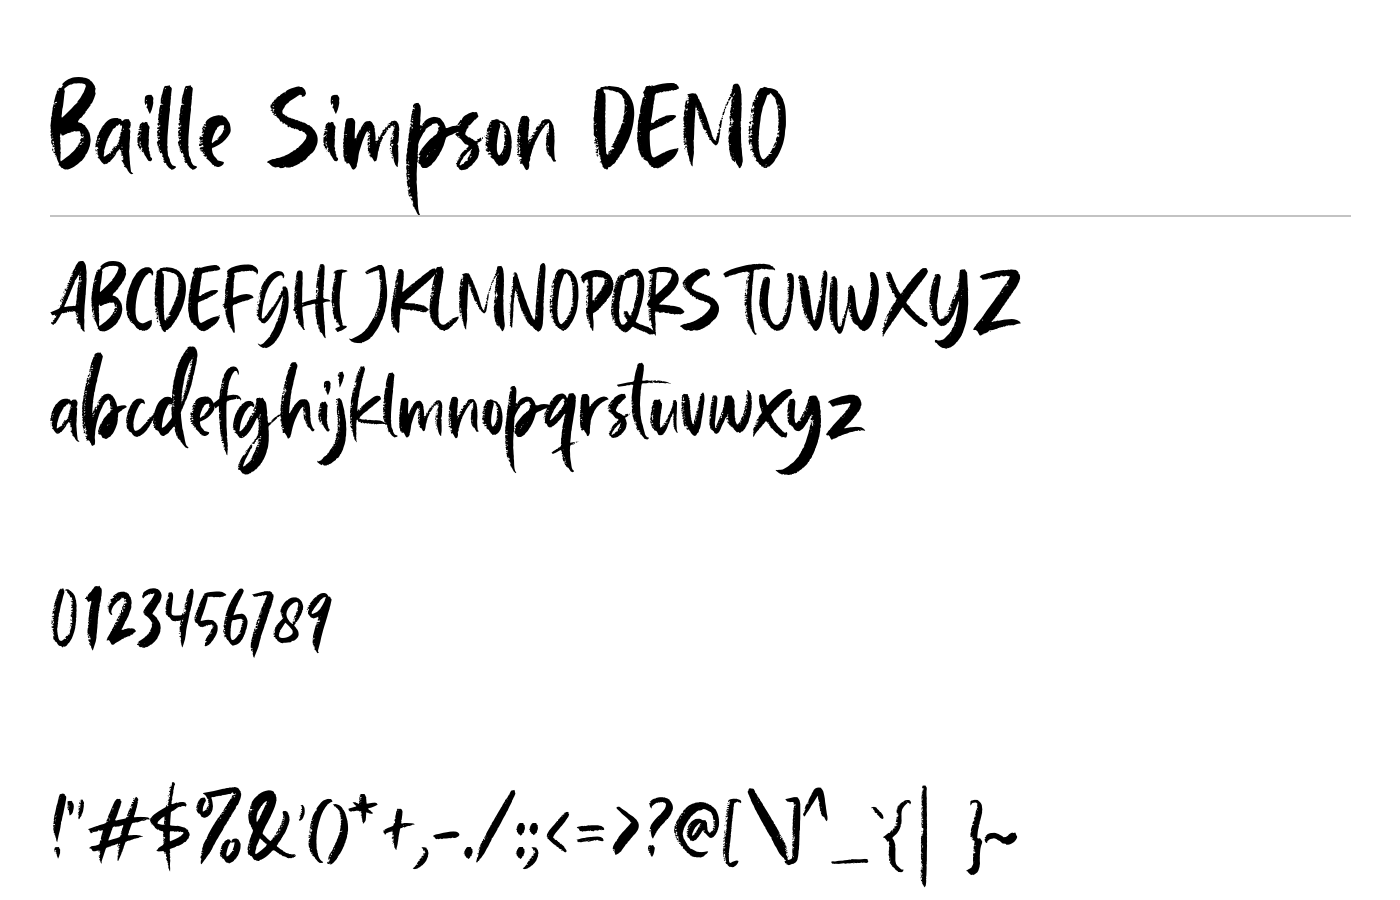 Baille Simpson DEMO
ABCDEFGHIJKLMNOPQRSTUVWXYZ
abcdefghijklmnopqrstuvwxyz
0123456789
!"#$%&'()*+,-./:;<=>?@[\]^_`{|}~